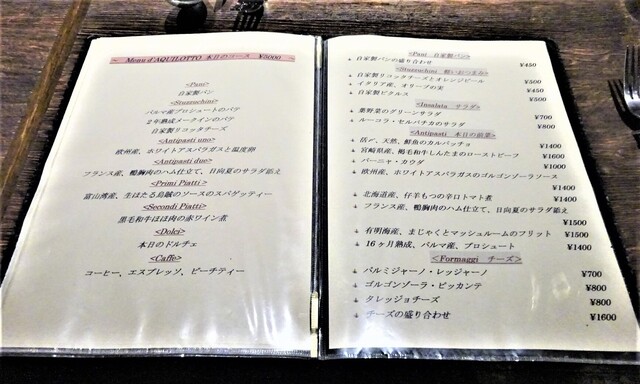 ～ Menu d'AQUILOTTO 本日のコース ¥5000 ～
<Pani>
自家製パン
<Stuzzichini>
パルマ産プロシュートのパヴ
2年熟成メークインのパヴ
自家製リコッタチーズ
<Antipasti uno>
欧州産、ホワイトアスパラガスと温度卵
<Antipasti due>
フランス産、鴨胸肉のハム仕立て、日向夏のサラダ添え
<Primi Piatti>
富山湾産、生ほたる烏賊のソースのスパゲッティー
<Secondi Piatti>
黒毛和牛ほほ肉の赤ワイン煮
<Dolci>
本日のドルチェ
<Caffe>
コーヒー、エスプレッソ、ピーチティー
<Pani 自家製パン>
自家製パンの盛り合わせ ¥450
<Stuzzichini 軽いおつまみ>
自家製リコッタチーズとオレンジピール ¥500
イタリア産、オリーブの実 ¥450
自家製ピクルス ¥500
<Insalata サラダ>
葉野菜のグリーンサラダ ¥700
ルーコラ・セルバチカのサラダ ¥800
<Antipasti 本日の前菜>
活〆、天然、鮮魚のカルパッチョ ¥1400
宮崎県産、褐毛和牛しんたまのローストビーフ ¥1600
バーニャ・カウダ ¥1000
欧州産、ホワイトアスパラガスのゴルゴンゾーラソース ¥1400
北海道産、仔羊もつの辛口トマト煮 ¥1400
フランス産、鴨胸肉のハム仕立て、日向夏のサラダ添え ¥1500
有明海産、まじゃくとマッシュルームのフリット ¥1500
16ヶ月熟成、パルマ産、プロシュート ¥1400
<Formaggi チーズ>
パルミジャーノ・レッジャーノ ¥700
ゴルゴンゾーラ・ピッカンテ ¥800
タレッジョチーズ ¥800
チーズの盛り合わせ ¥1600